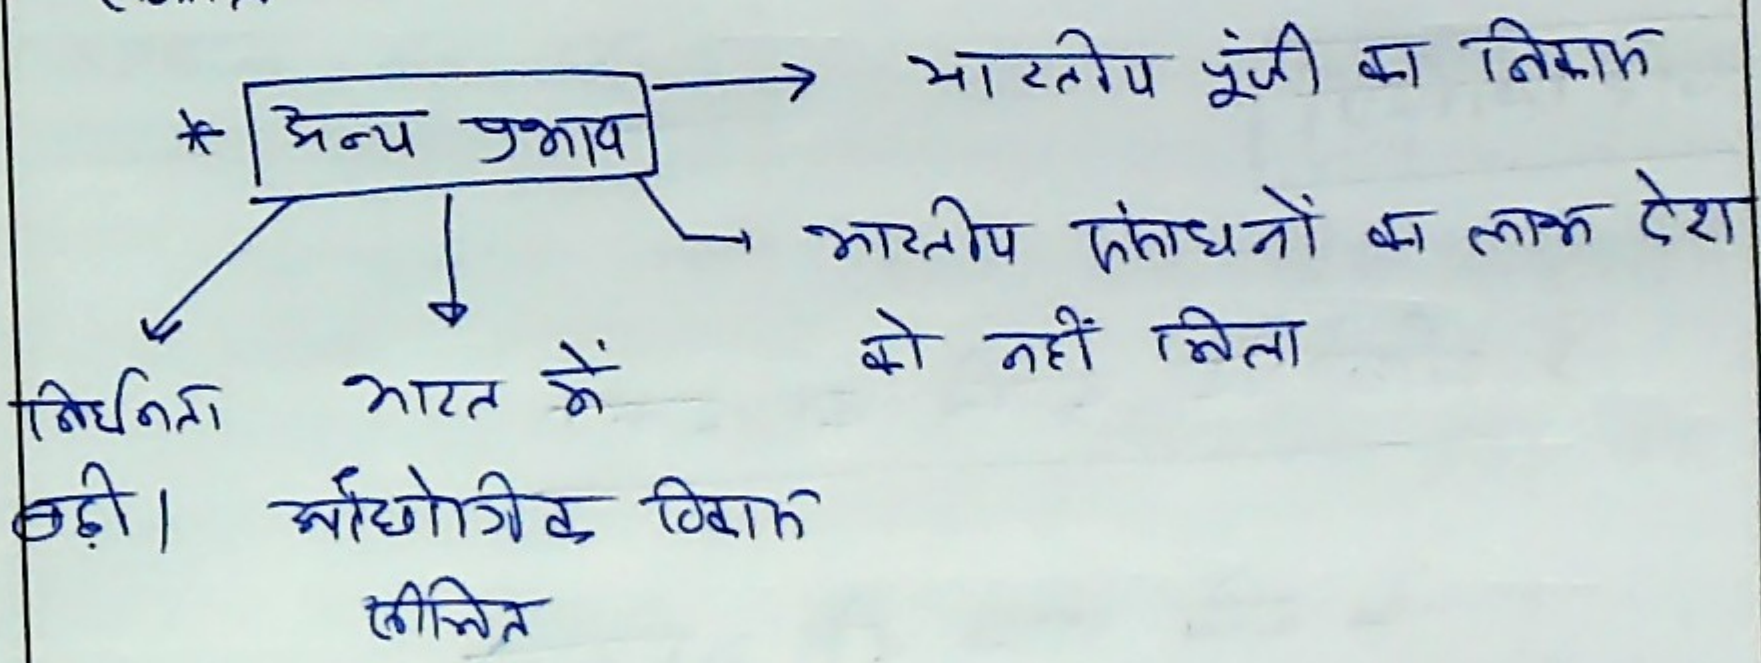 * अन्य प्रभाव
भारतीय पूंजी का निकास
भारतीय संसाधनों का लाभ देश
को नहीं मिला
निर्धनता
बढ़ी।
भारत में
औद्योगिक विकास
सीमित